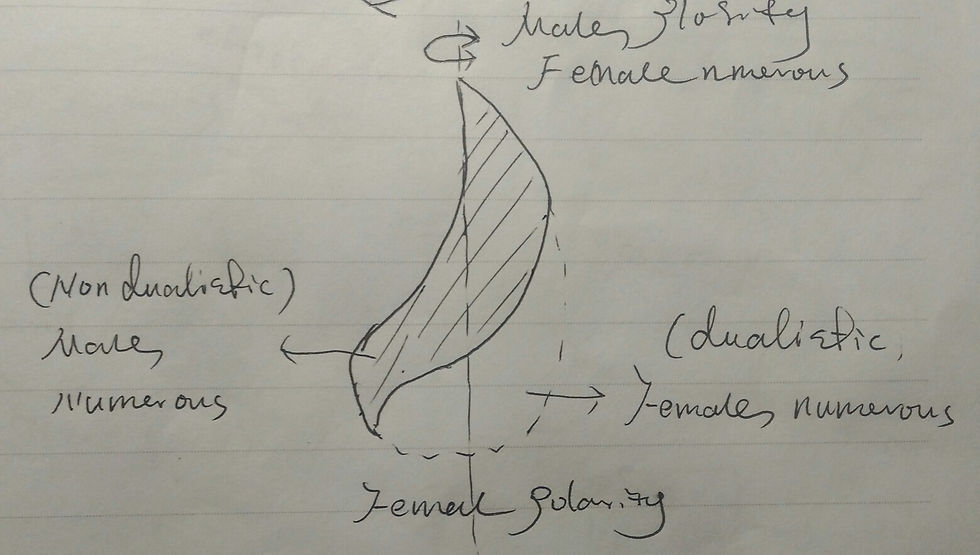 Males polarity
Female nmerous
(Non dualistic)
Males
Numerous
(dualistic,
Females numerous
Femal polarity